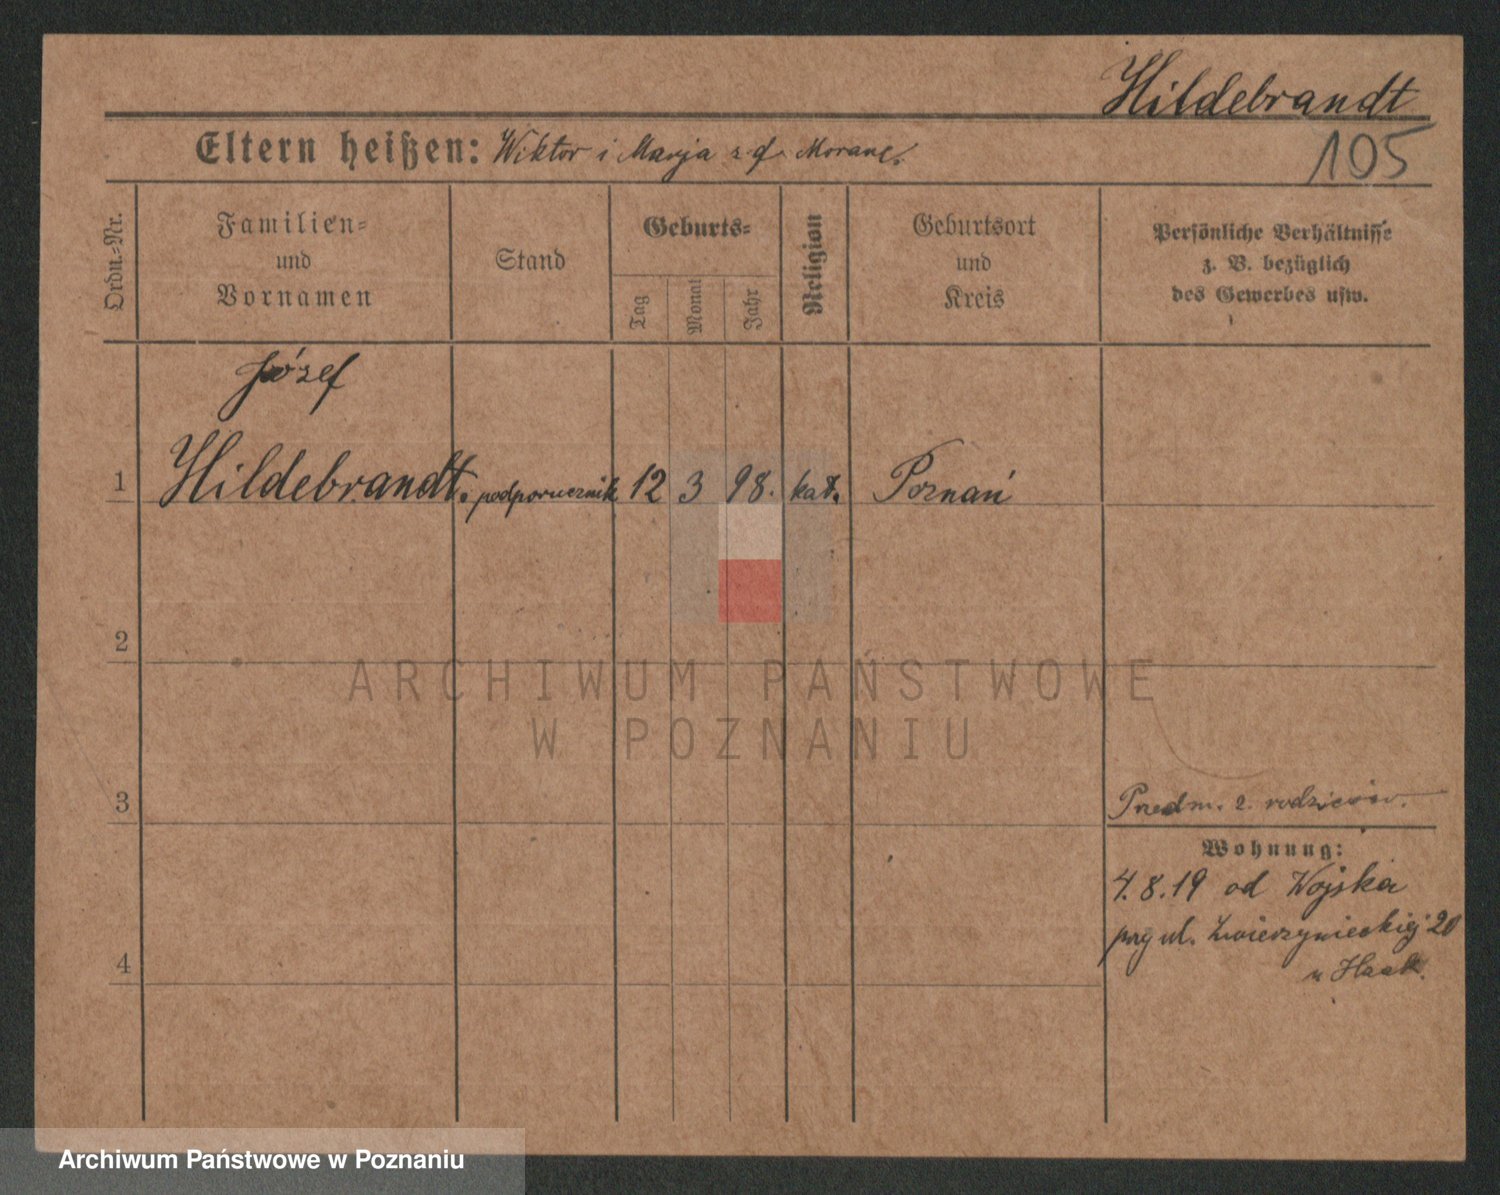 Hildebrandt
105
Eltern heißen: Wiktor i Marja z d.
Ordn.-Nr.
Familien-
und
Vornamen
Stand
Geburts-
Tag
Monat
Jahr
Religion
Geburtsort
und
Kreis
Persönliche Verhältnisse
z. B. bezüglich
des Gewerbes usw.
Józef
1 Hildebrandt. podporucznik 12 3 98. kat. Poznań
2
ARCHIWUM PAŃSTWOWE
W POZNANIU
3
Przedm. z. rodziców.
Wohnung:
4.8.19 od Wojska
przy ul. Zwierzynieckiej 20
4
u Haak.
Archiwum Państwowe w Poznaniu